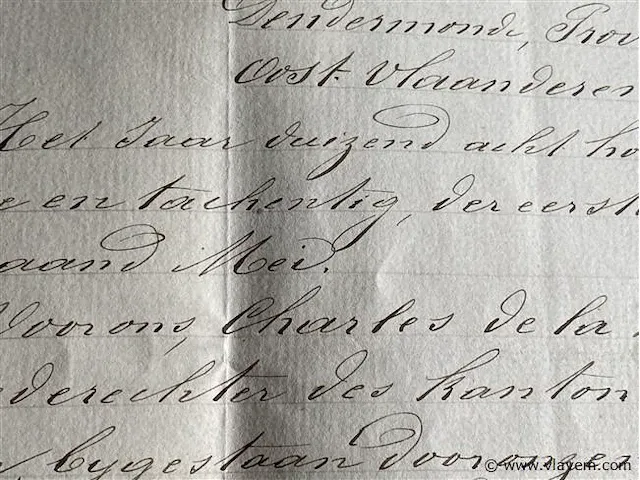 Dendermonde, Prov
Oost-Vlaanderen
Het Jaar duizend acht ho
e en tachentig, der eerst
aand Mei.
Voor ons, Charles de la
ederechter des kanton
bygestaan door onzen
© www.vlavem.com